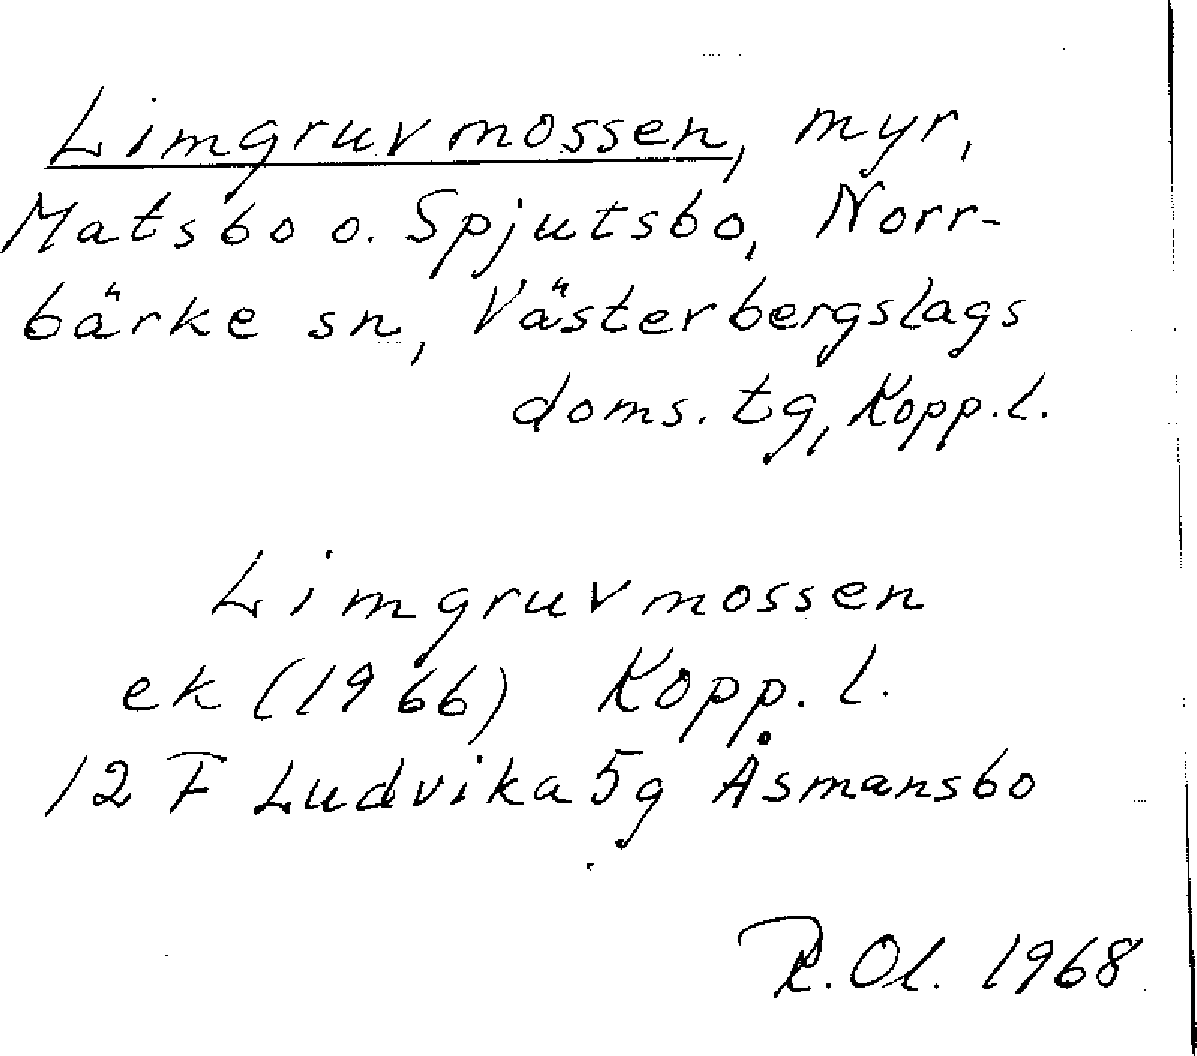 Limgruvmossen, myr,
Matsbo o. Spjutsbo, Norr-
bärke sn, Västerbergslags
doms. tg, Kopp. l.
Limgruvmossen
ek (1966) Kopp. l.
12 F Ludvika 5g Åsmansbo
R. Ol. 1968